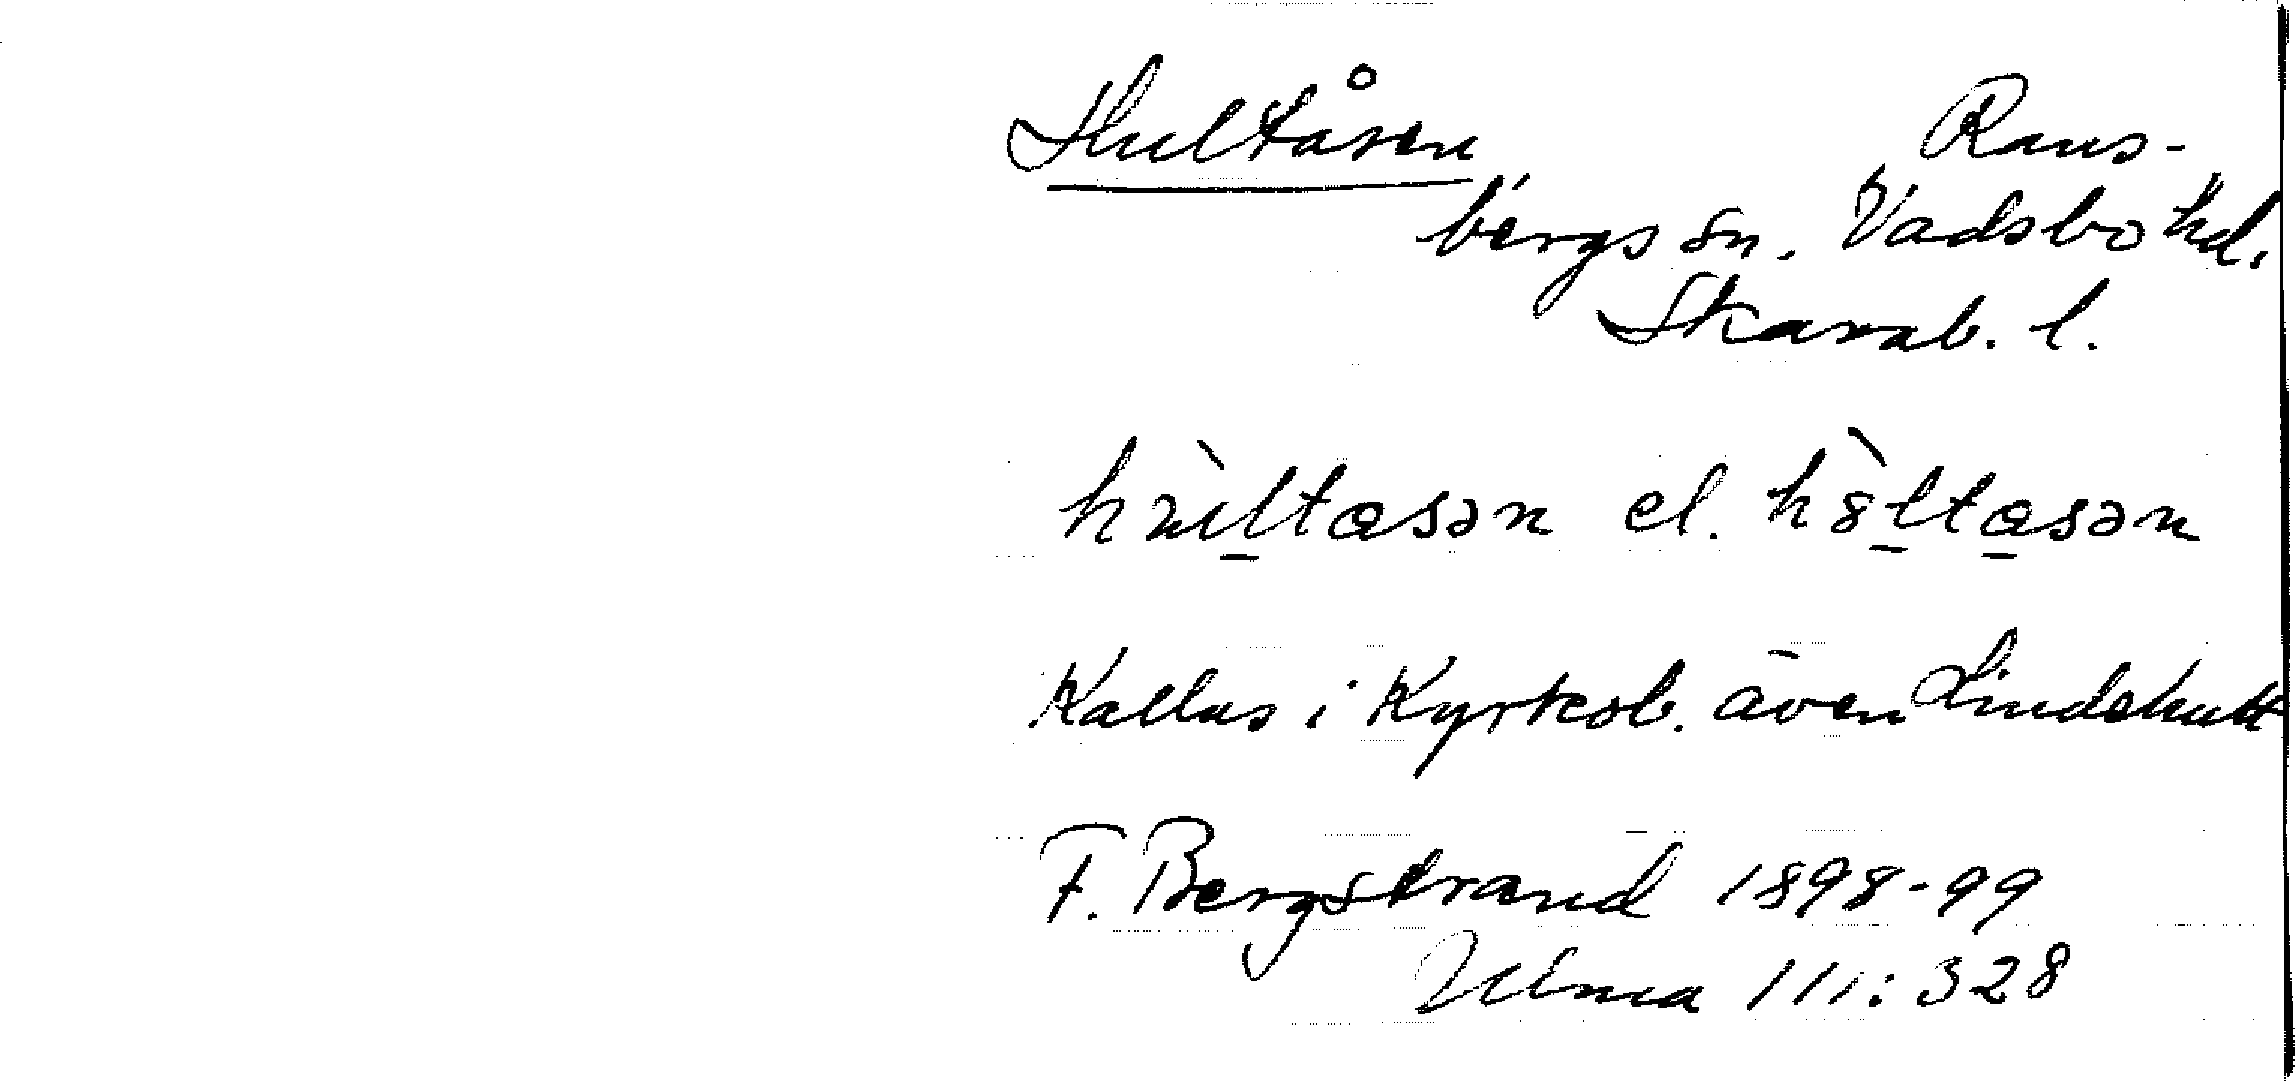 Hultåsen Rans-
bergs sn. Vadsbo hd.
Skarab. l.
hùltasən el. hòltasən
Kallas i Kyrkob. även Lindehult
F. Bergstrand 1898-99
Ulma 111:328